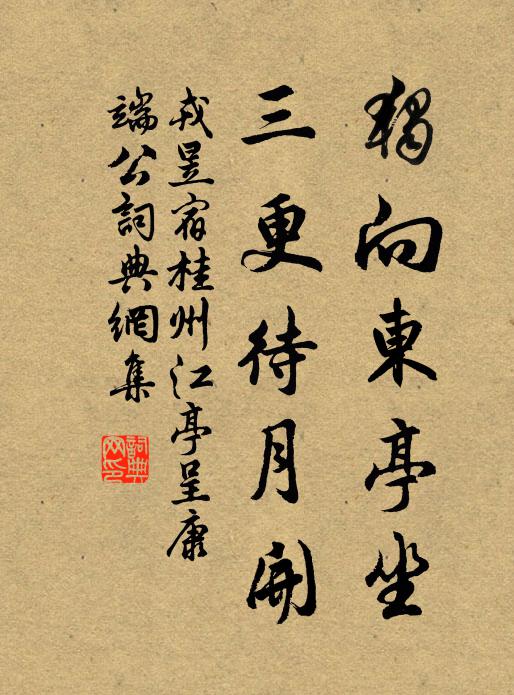 獨向東亭坐
三更待月開
戎昱宿桂州江亭呈康
端公詞典網集
詞典網印